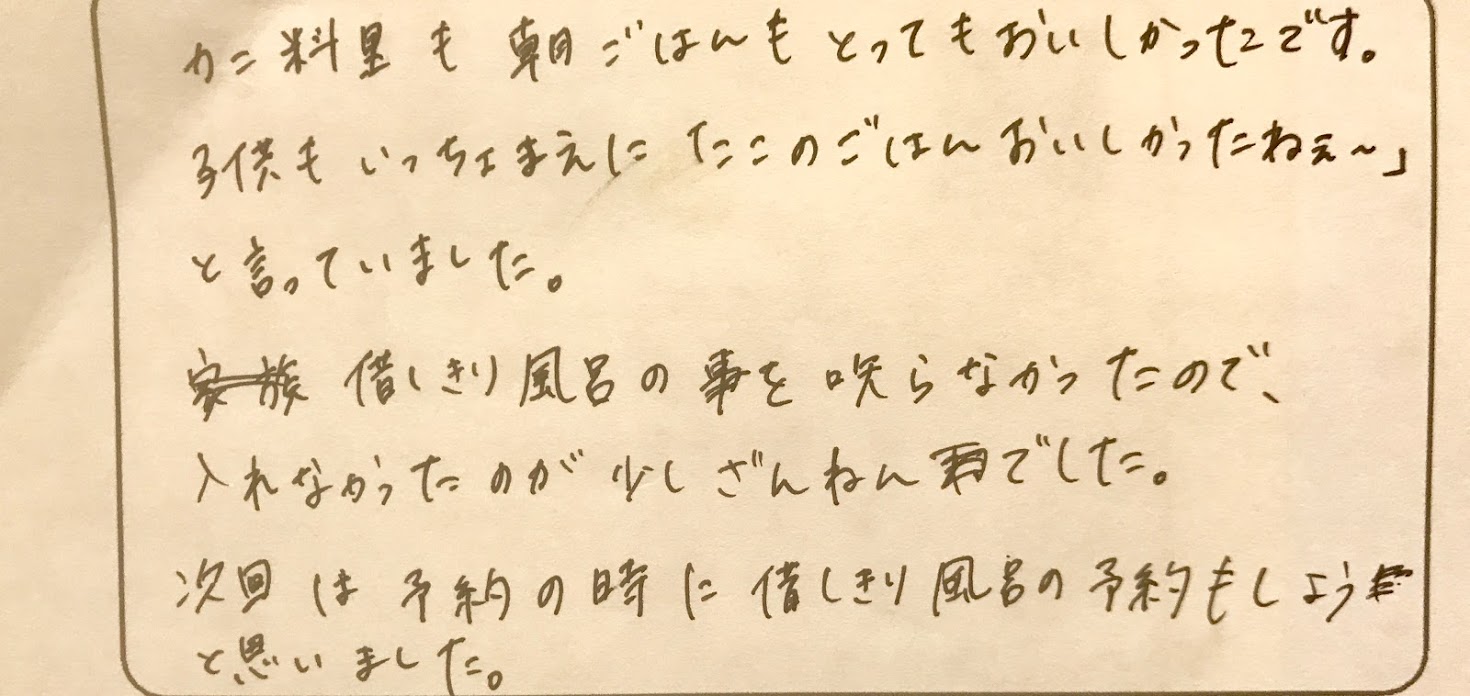 カニ料理も朝ごはんもとってもおいしかったです。
子供もいっちょまえに「ここのごはんおいしかったねぇ~」
と言っていました。
家族 借しきり風呂の事を知らなかったので、
入れなかったのが少しざんねんでした。
次回は予約の時に借しきり風呂の予約もしよう
と思いました。